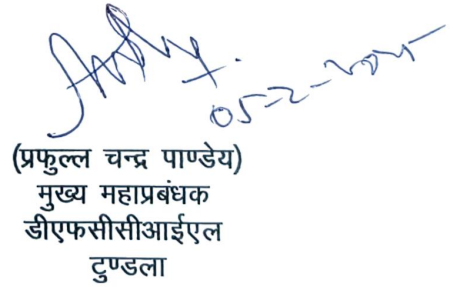 05-2-2025
(प्रफुल्ल चन्द्र पाण्डेय)
मुख्य महाप्रबंधक
डीएफसीसीआईएल
टुण्डला